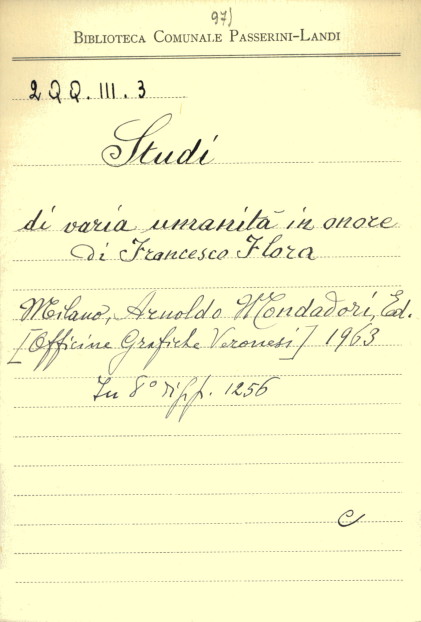 97)
BIBLIOTECA COMUNALE PASSERINI-LANDI
2QQ.III.3
Studi
di varia umanità in onore
di Francesco Flora
Milano, Arnoldo Mondadori, Ed.
[Officine Grafiche Veronesi] 1963
In 8° di pp. 1256
C